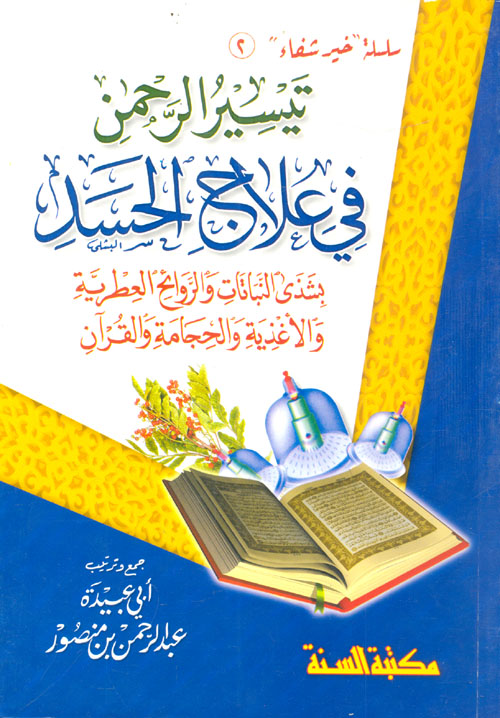 سلسلة "خير شفاء" ٢
تَيْسِيرُ الرَّحْمَنِ
فِي عِلَاجِ الحَسَدِ
بِشَذَى النَّبَاتَاتِ وَالرَّوَائِحِ العِطْرِيَّةِ
وَالأَغْذِيَةِ وَالحِجَامَةِ وَالقُرْآنِ
جمع وترتيب
أبي عبيدة
عبد الرحمن بن منصور
مكتبة السنة